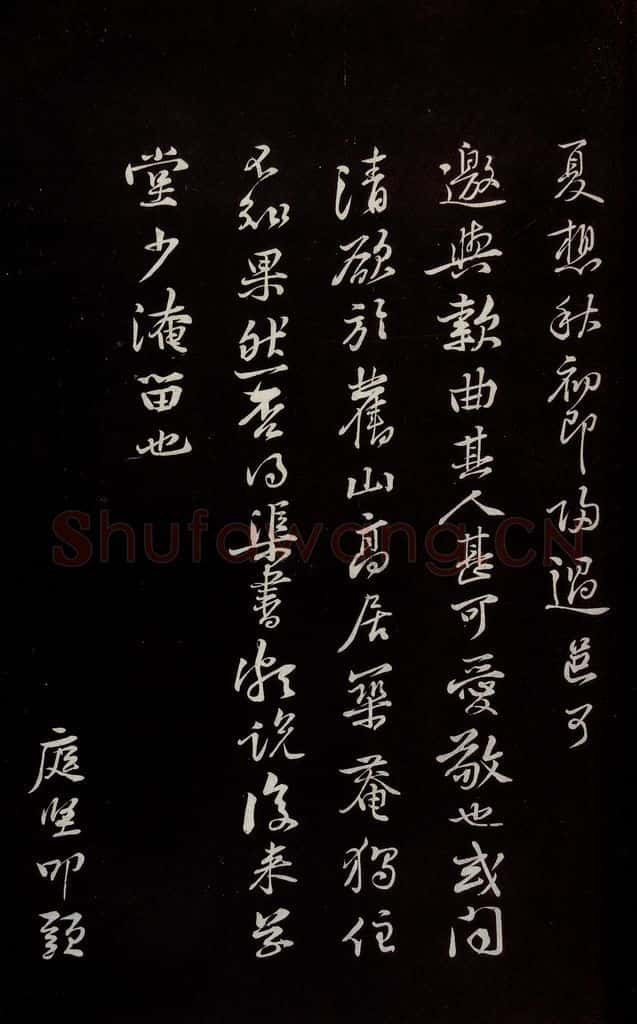 夏想秋初即歸過邑可
邀與款曲其人甚可愛敬也或聞
清欲於舊山高居築庵獨住
不知果然否得渠書說來草
堂少淹留也
庭堅叩頭
Shufawang.CN